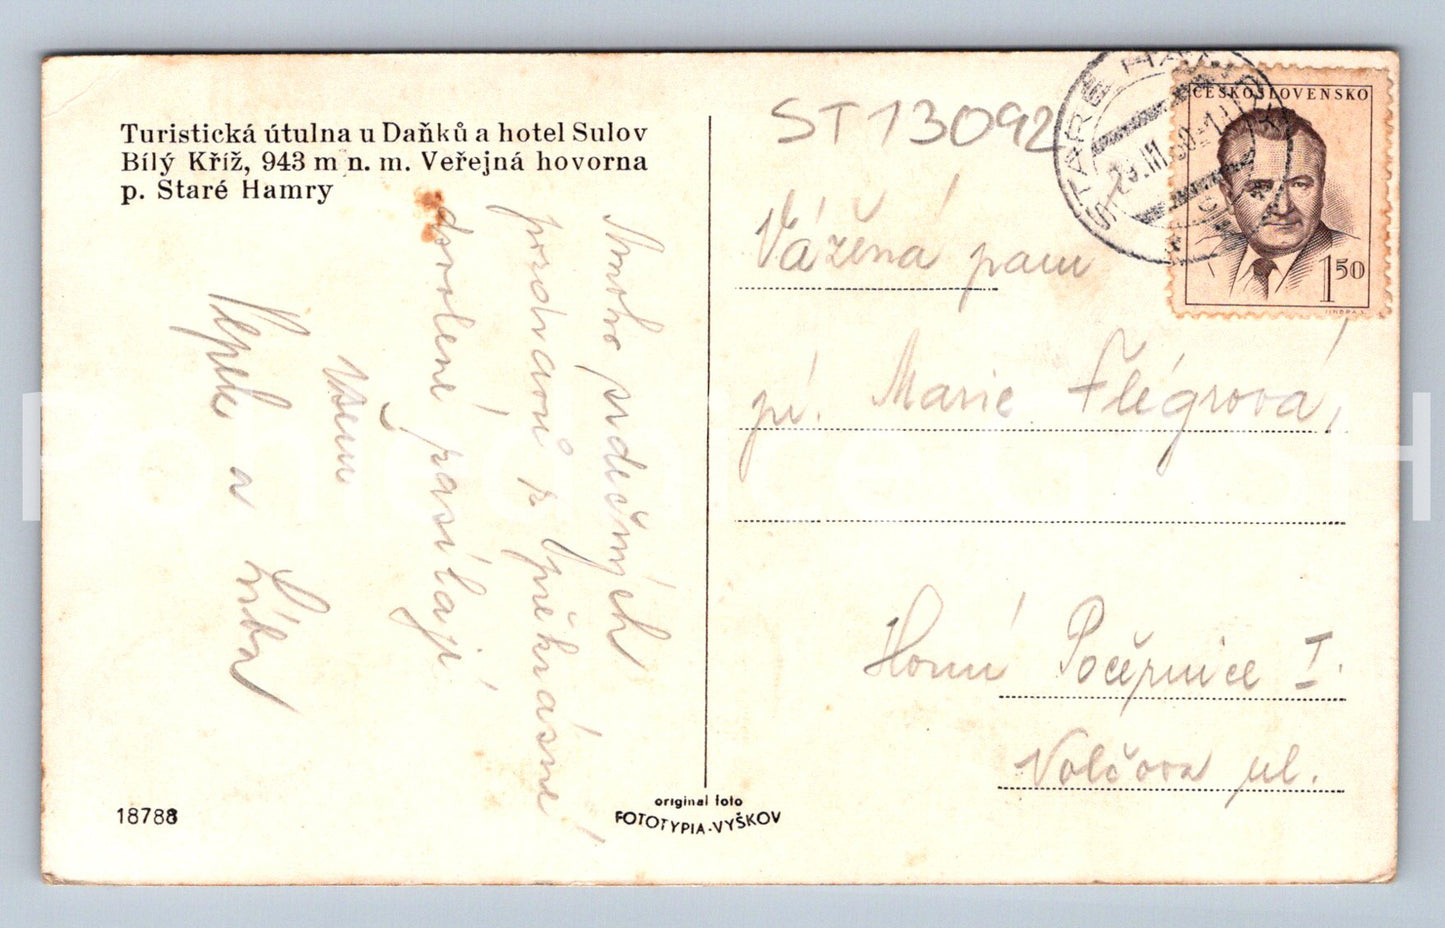 Turistická útulna u Daňků a hotel Sulov
Bílý Kříž, 943 m n. m. Veřejná hovorna
p. Staré Hamry
Mnoho srdečných
pozdravů z překrásné
dovolené posílají
Všem
Pepek a Liba
18788
original foto
FOTOTYPIA-VYŠKOV
ST13092
STARÉ HAMRY
29.III.50
ČESKOSLOVENSKO
1 50
Vážená paní
pí. Marie Flégrová,
Horní Počernice I.
Volčova ul.
Pohlednice GASH